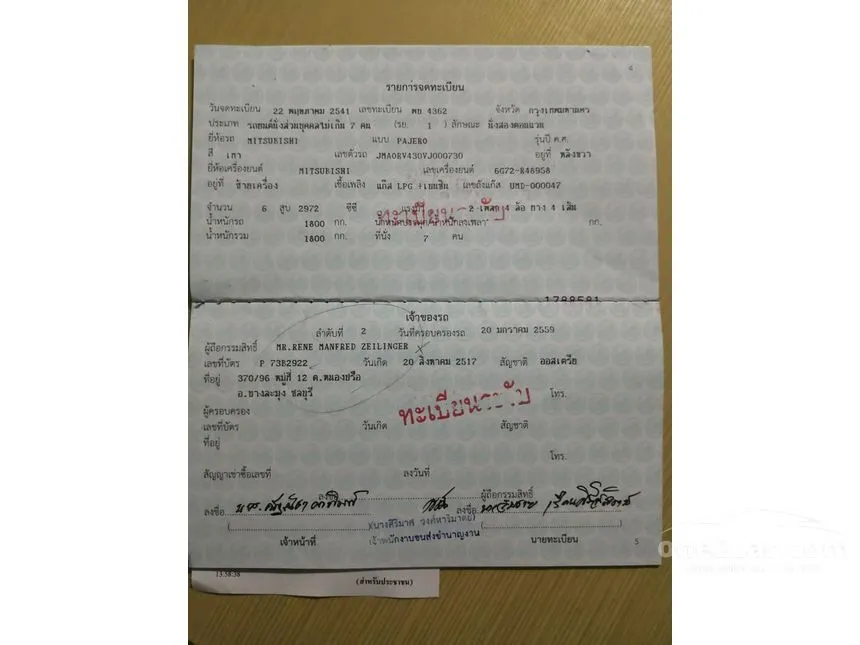 4
รายการจดทะเบียน
วันจดทะเบียน 22 พฤษภาคม 2541 เลขทะเบียน พย 4362 จังหวัด กรุงเทพมหานคร
ประเภท รถยนต์นั่งส่วนบุคคลไม่เกิน 7 คน (รย. 1 ) ลักษณะ นั่งสองตอนแวน
ยี่ห้อรถ MITSUBISHI แบบ PAJERO รุ่นปี ค.ศ.
สี เทา เลขตัวรถ JMA0RV430VJ000730 อยู่ที่ หลังขวา
ยี่ห้อเครื่องยนต์ MITSUBISHI เลขเครื่องยนต์ 6G72-R48958
อยู่ที่ ซ้ายเครื่อง เชื้อเพลิง แก๊ส LPG +เบนซิน เลขถังแก๊ส UMD-000047
จำนวน 6 สูบ 2972 ซีซี แรงม้า 2 เพลา 4 ล้อ ยาง 4 เส้น
น้ำหนักรถ 1800 กก. น้ำหนักบรรทุก/น้ำหนักลงเพลา กก.
น้ำหนักรวม 1800 กก. ที่นั่ง 7 คน
ทะเบียนระงับ
1788581
เจ้าของรถ
ลำดับที่ 2 วันที่ครอบครองรถ 20 มกราคม 2559
ผู้ถือกรรมสิทธิ์ MR.RENE MANFRED ZEILINGER
เลขที่บัตร P 73B2922 วันเกิด 20 สิงหาคม 2517 สัญชาติ ออสเตรีย
ที่อยู่ 370/96 หมู่ที่ 12 ต.หนองปรือ
อ.บางละมุง ชลบุรี โทร.
ทะเบียนระงับ
ผู้ครอบครอง
เลขที่บัตร วันเกิด สัญชาติ
ที่อยู่
โทร.
สัญญาเช่าซื้อเลขที่ ลงวันที่
ลงชื่อ ผู้ถือกรรมสิทธิ์
ลงชื่อ ลงชื่อ
(นางศิริมาศ วงศ์หาริมาตย์)
เจ้าหน้าที่ เจ้าพนักงานขนส่งชำนาญงาน นายทะเบียน
5
13:58:38
(สำหรับประชาชน)